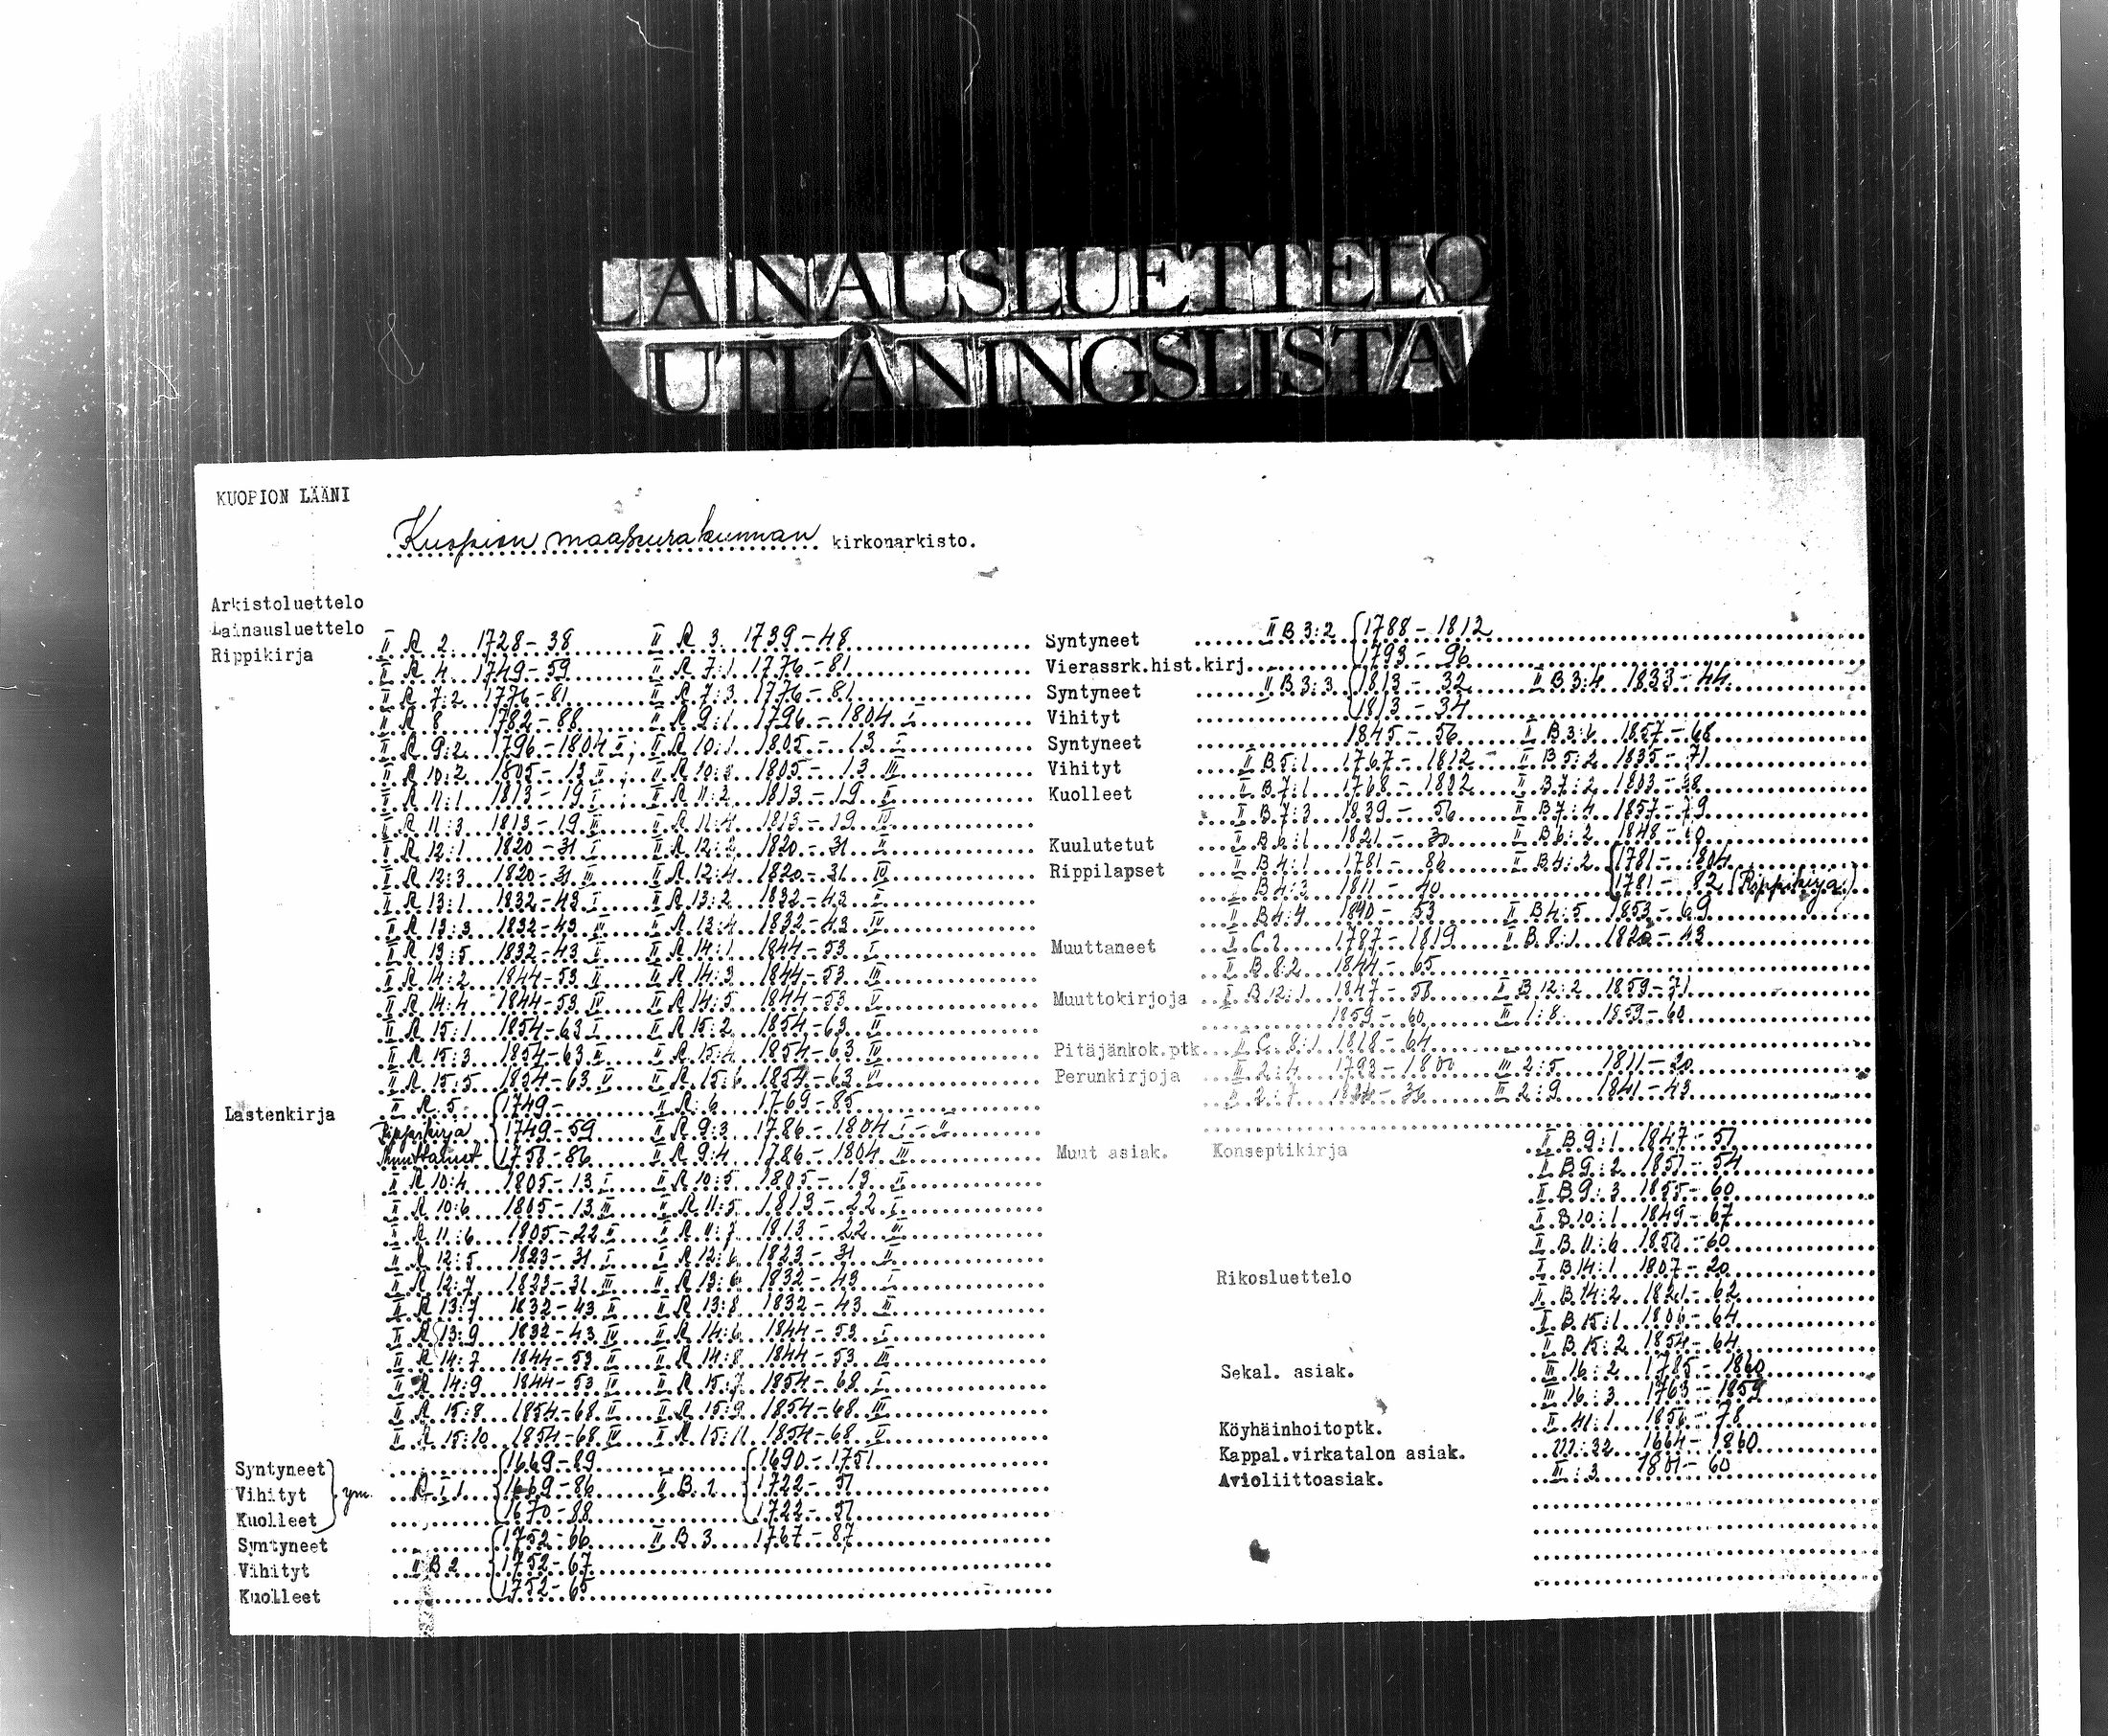 LAINAUSLUETTELO
UTLÅNINGSLISTA
KUOPION LÄÄNI
Kuopion maaseurakunnan kirkonarkisto.
Arkistoluettelo
Lainausluettelo
Rippikirja
II A 2 1728-38 II A 3 1739-48
II A 4 1749-59 II A 7:1 1776-81
II A 7:2 1776-81 II A 7:3 1776-81
II A 8 1782-88 II A 9:1 1796-1804 I
II A 9:2 1796-1804 II; II A 10:1 1805-13 I
II A 10:2 1805-13 II; II A 10:3 1805-13 III
II A 11:1 1813-19 I; II A 11:2 1813-19 II
II A 11:3 1813-19 III II A 11:4 1813-19 IV
II A 12:1 1820-31 I II A 12:2 1820-31 II
II A 12:3 1820-31 III II A 12:4 1820-31 IV
II A 13:1 1832-43 I II A 13:2 1832-43 II
II A 13:3 1832-43 III II A 13:4 1832-43 IV
II A 13:5 1832-43 II A 14:1 1844-53 I
II A 14:2 1844-53 II II A 14:3 1844-53 III
II A 14:4 1844-53 IV II A 14:5 1844-53 V
II A 15:1 1854-63 I II A 15:2 1854-63 II
II A 15:3 1854-63 II A 15:4 1854-63 IV
II A 15:5 1854-63 V II A 15:6 1854-63 VI
Lastenkirja
II A 5 1749- II A 6 1769-85
Rippikirja 1749-59 II A 9:3 1786-1804 I-II
Muuttaneet 1758-86 II A 9:4 1786-1804 III
II A 10:4 1805-13 I II A 10:5 1805-13 II
II A 10:6 1805-13 III II A 11:5 1813-22 I
II A 11:6 1805-22 II II A 11:7 1813-22 III
II A 12:5 1823-31 I II A 12:6 1823-31 II
II A 12:7 1823-31 III II A 13:6 1832-43 I
II A 13:7 1832-43 II II A 13:8 1832-43
II A 13:9 1832-43 IV II A 14:6 1844-53 I
II A 14:7 1844-53 II II A 14:8 1844-53 III
II A 14:9 1844-53 IV II A 15:7 1854-68 I
II A 15:8 1854-68 II II A 15:9 1854-68 III
II A 15:10 1854-68 IV II A 15:11 1854-68 V
Syntyneet 1669-89 1690-1751
Vihityt ym. 1669-86 II B 1 1722-51
Kuolleet 1670-88 1722-51
Syntyneet 1752-66 II B 3 1767-87
Vihityt II B 2 1752-67
Kuolleet 1752-65
Syntyneet II B 3:2 1788-1812
Vierassrk.hist.kirj. 1793-96
Syntyneet II B 3:3 1813-32 II B 3:4 1833-44
Vihityt 1813-34
Syntyneet 1845-56 II B 3:6 1857-68
Vihityt II B 5:1 1767-1812 II B 5:2 1835-71
Kuolleet II B 7:1 1768-1802 II B 7:2 1803-38
II B 7:3 1839-56 II B 7:4 1857-79
Kuulutetut II B 6:1 1821-30 II B 6:2
Rippilapset II B 4:1 1781-86 II B 4:2 1781-1804
II B 4:3 1811-40 1781-82 (Rippikirja)
II B 4:4 1840-53 II B 4:5 1853-69
Muuttaneet 1787-1819 II B 8:1 1820-43
II B 8:2 1844-65
Muuttokirjoja II B 12:1 1847-58 II B 12:2 1859-71
1859-60 III 1:8 1859-60
Pitäjänkok.ptk. II C 8:1 1818-64
Perunkirjoja III 2:4 1793-1800 III 2:5 1811-20
III 2:7 III 2:9 1841-43
Muut asiak. Konseptikirja II B 9:1 1847-51
II B 9:2 1851-54
II B 9:3 1855-60
II B 10:1 1849-67
II B 11:6 1850-60
Rikosluettelo II B 14:1 1807-20
II B 14:2 1821-62
II B 15:1 1806-64
II B 15:2 1854-64
Sekal. asiak. III 16:2 1785-1860
III 16:3 1763-1859
Köyhäinhoitoptk. II 41:1 1856-78
Kappal.virkatalon asiak. III:32 1664-1860
Avioliittoasiak. II:3 1801-60